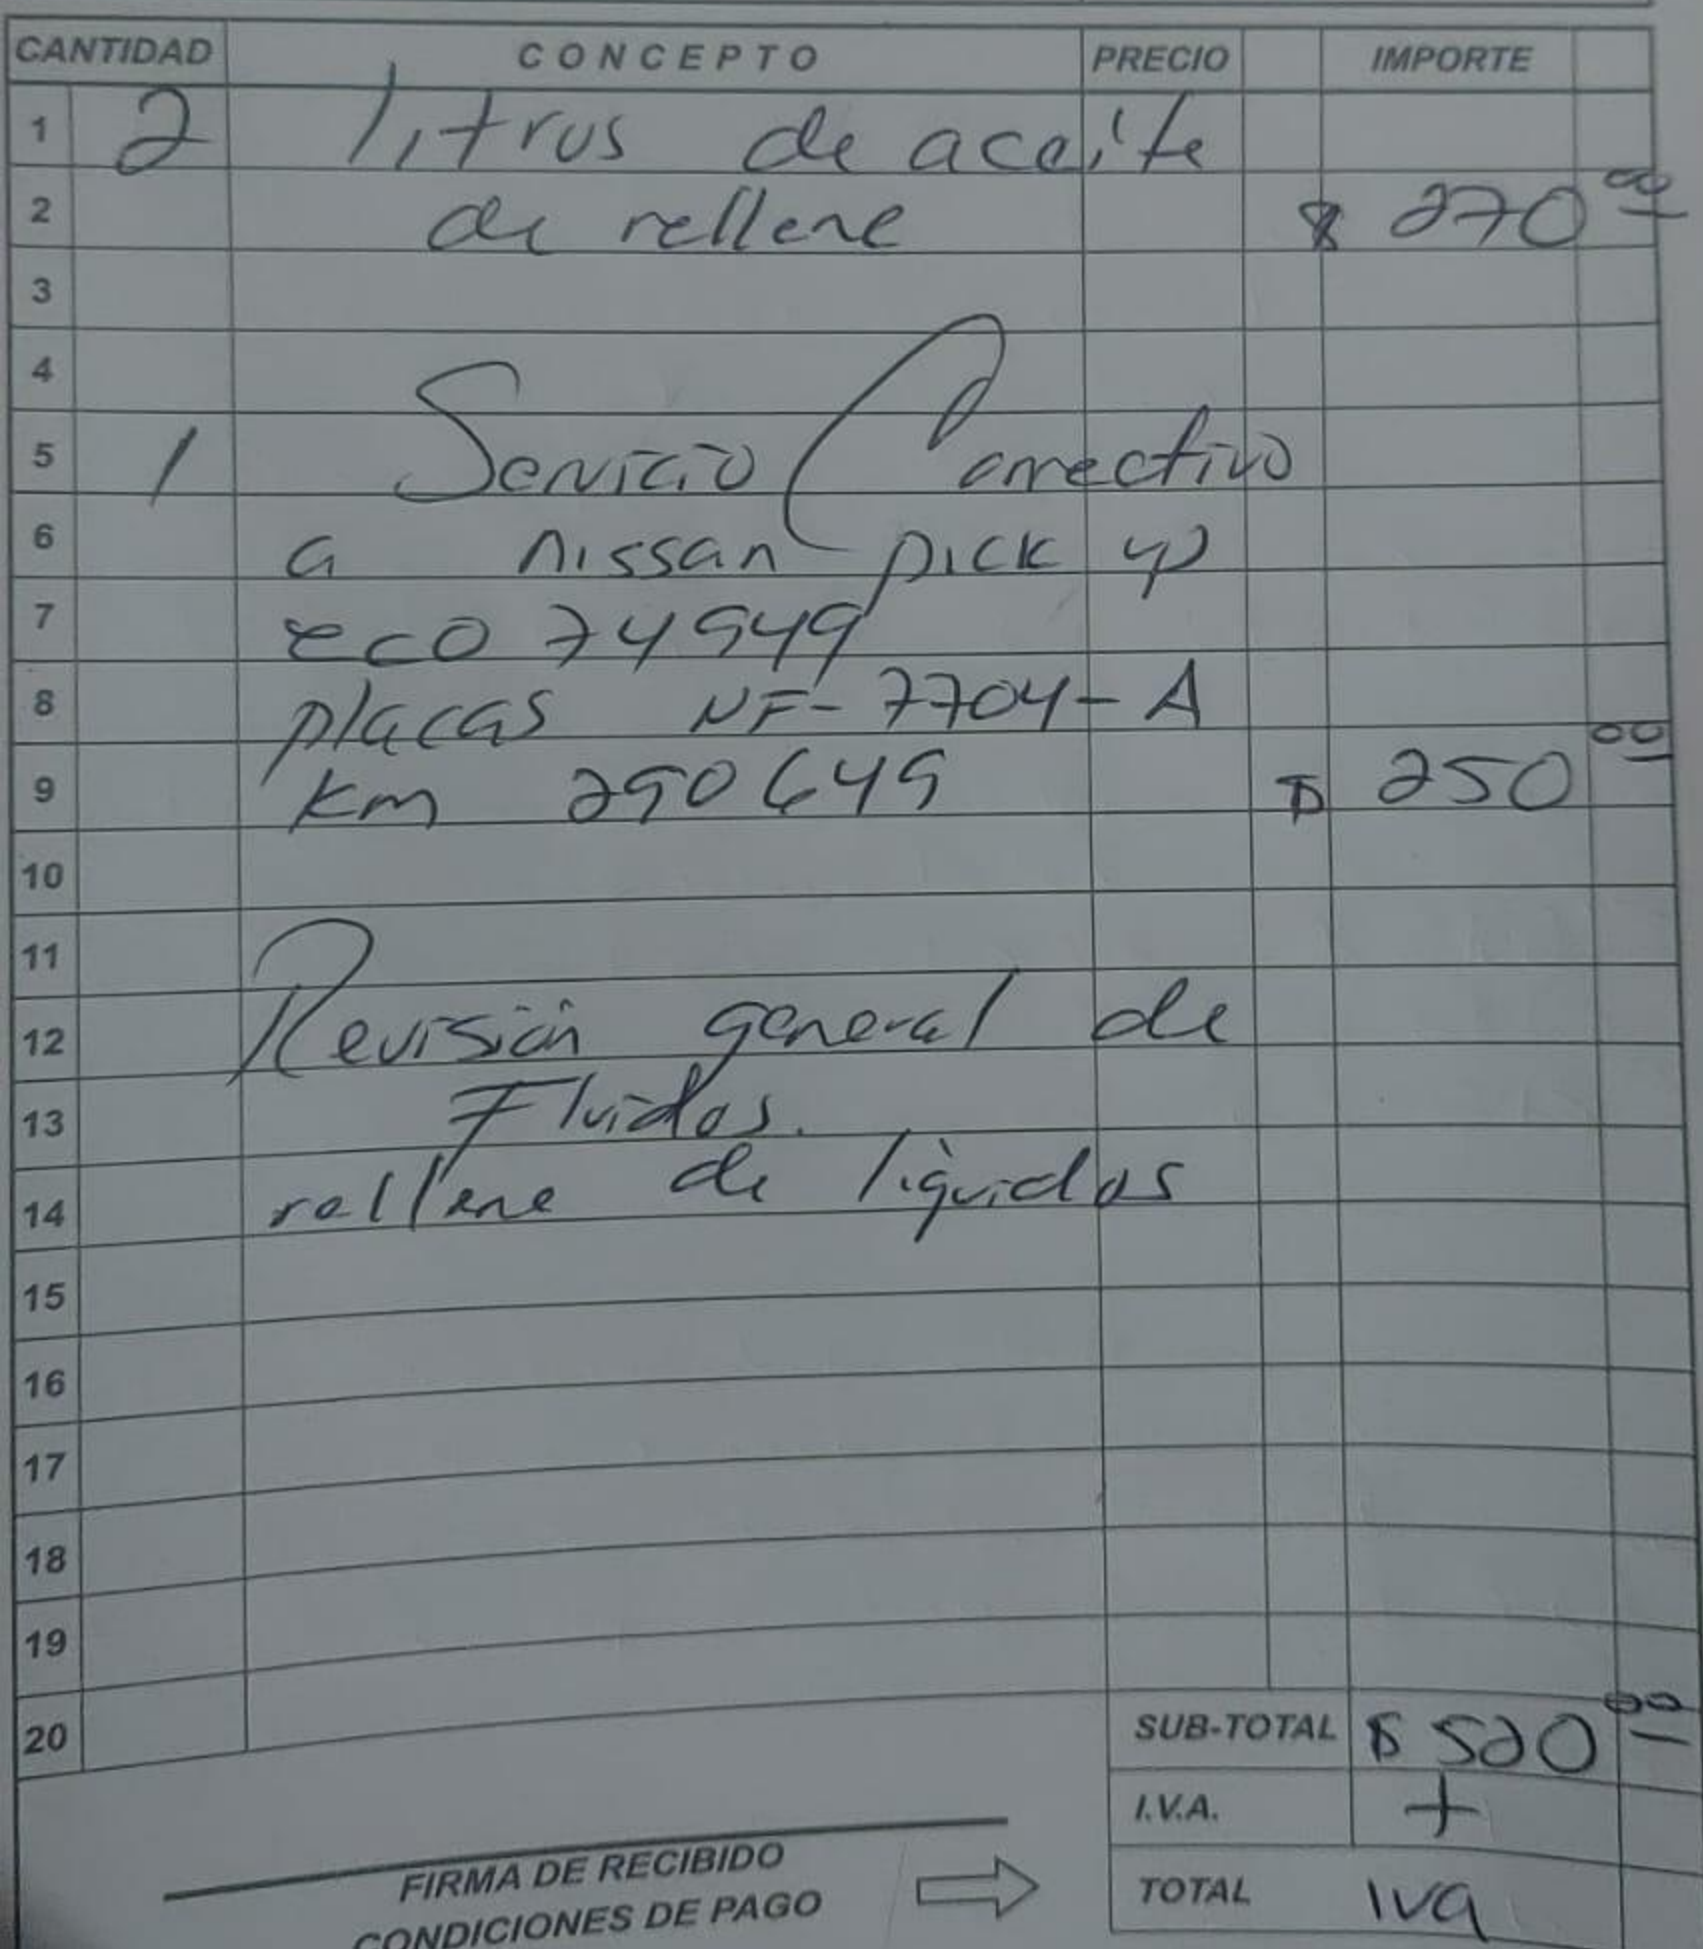 CANTIDAD CONCEPTO PRECIO IMPORTE
1 2 litros de aceite
2 de rellene $ 270.00
3
4
5 1 Servicio Correctivo
6 a nissan pick up
7 eco 74949
8 placas NF-7704-A
9 km 290649 $ 250.00
10
11
12 Revisión general de
13 Fluidos.
14 rellene de liquidos
15
16
17
18
19
20 SUB-TOTAL $ 520.00
I.V.A. +
FIRMA DE RECIBIDO TOTAL iva
CONDICIONES DE PAGO